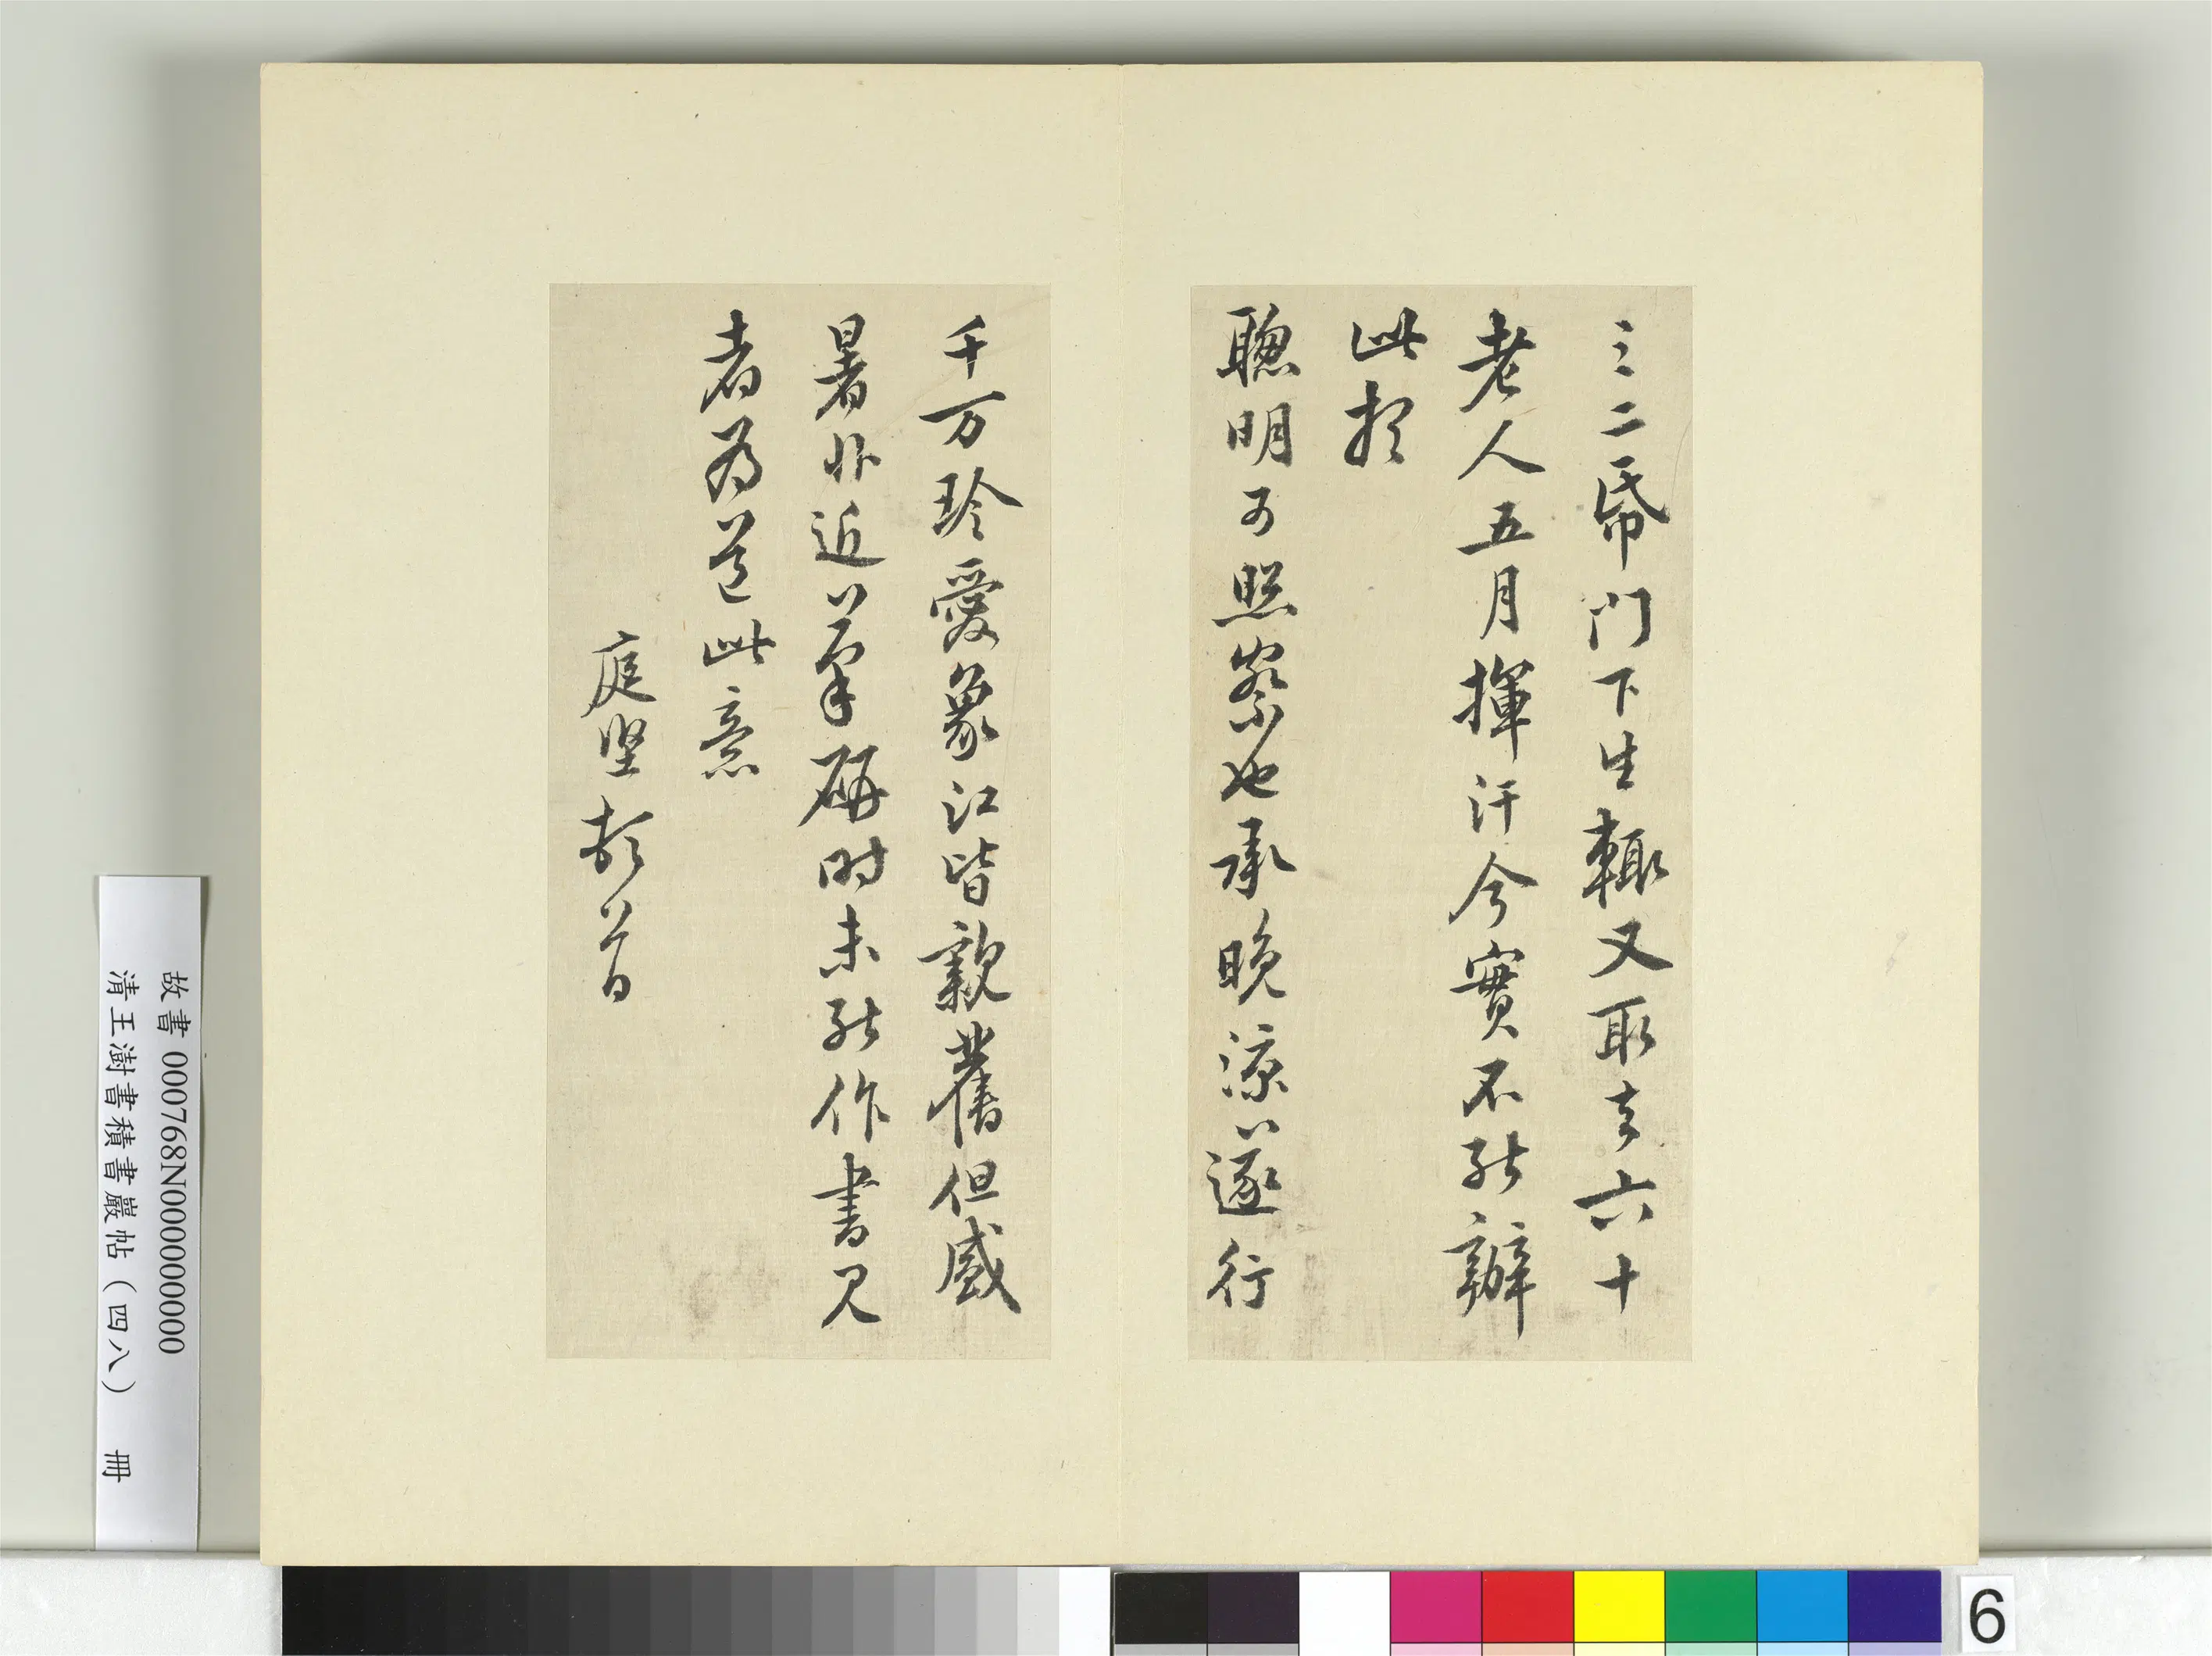 三二帋門下生輒又取去六十
老人五月揮汗今實不能辦
此想
聰明可照察也承晚涼遂行
千万珍愛象江皆親舊但盛
暑非近筆研時未能作書見
者為道此意
庭堅頓首
故書 000768N000000000
清王澍書積書巖帖（四八） 冊
6